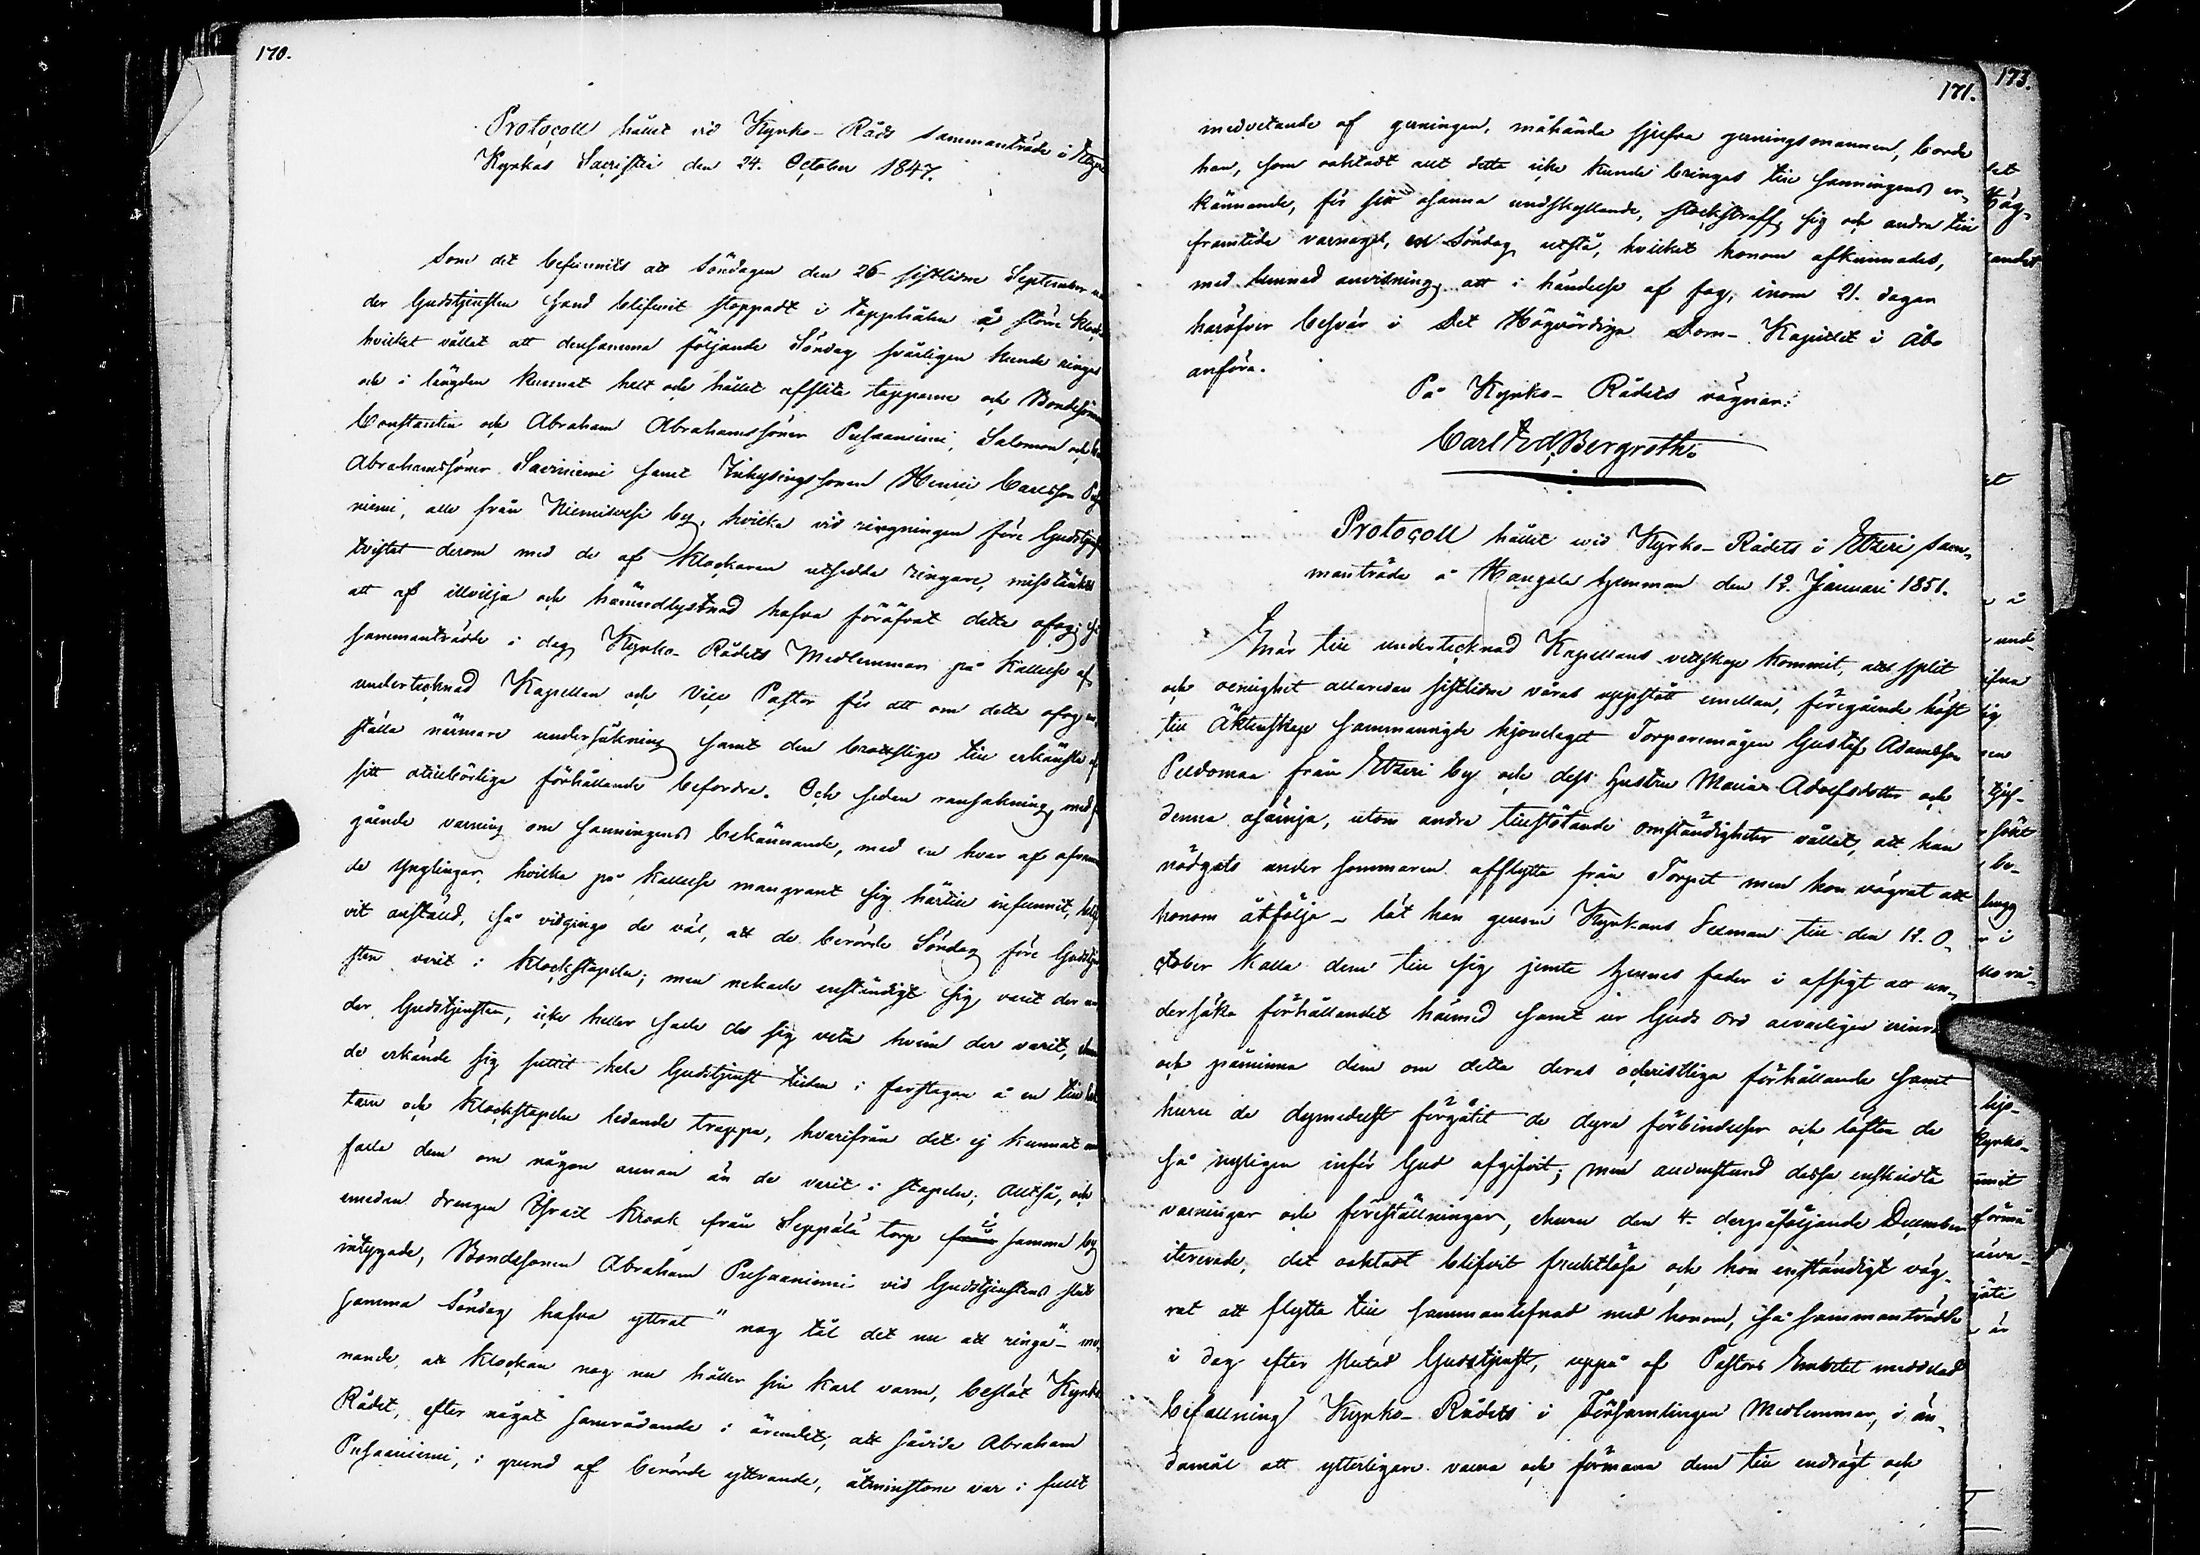 170.
Protocoll hållit vid Kyrko-Råds sammanträde i
Kyrkas Sacristia den 24. October 1847.
Som det befunnits att Söndagen den 26 sistlidne September
der Gudstjensten sand blifvit stoppadt i tapphålen å störe
hvilket vållat att densamma följande Söndag svårligen kunde ringas
och i längden kunnat helt och hållet afslita tapparne och
Constantin och Abraham Abrahamssöner Pusaaniemi, Salomon och
Abrahamssöner Saariniemi samt Inhysingssonen Henric Carlsson
niemi, alle från Niemisvesi by, hvilka vid ringningen före
tvistat derom med de af Klockaren utsedda ringare, misstänktes
att af illvilja och hämndlystnad hafva föröfvat detta ofog;
sammanträdde i dag Kyrko-Rådets Medlemmar på kallelse af
undertecknad Kapellan och Vice Pastor för att om detta ofog
ställa närmare undersökning samt den brottslige till erkänsla af
sitt otillbörliga förhållande befordra. Och sedan ransakning, med
gående varning om sanningens bekännande, med en hvar af
de ynglingar, hvilka på kallelse mangrant sig härtill infunnit,
vit anställd, så vidgingo de väl, att de berörde Söndag före
sten varit i Klockstapeln; men nekade enständigt sig varit der
der Gudstjensten, icke heller sade de sig veta hvem der varit,
de erkände sig suttit hela Gudstjenst tiden i farstugan å en till
tarn och Klockstapeln ledande trappa, hvarifrån det ej kunnat
falla dem om någon annan än de varit i stapeln; Alltså, och
emedan drengen Israel Krook från Seppälä torp från i samma by
intygade, Bondesonen Abraham Pusaaniemi vid Gudstjenstens slut
samma Söndag hafva yttrat "nog tål det nu att ringa" –
nande att klockan nog nu håller sin karl varm, beslöt Kyrko
Rådet, efter något samrådande i ärendet, att såvida Abraham
Pusaaniemi, i grund af berörde yttrande, åtminstone var i fullt
171.
medvetande af gerningen, måhända sjelfva gerningsmannen, borde
han, som oaktadt allt detta icke kunde bringas till sanningens er-
kännande, för sin osanna undskyllande, stockstraff, sig och andra till
framtida varnagel, en Söndag utstå, hvilket honom afkunnades,
med lemnad anvisning, att i händelse af fog, inom 21. dagar
häröfver besvär i Det Högvördiga Dom-Kapitlet i Åbo
anföra.
På Kyrko-Rådets vägnar:
Carl Fred. Bergroth.
Protocoll hållit wid Kyrko-Rådets i Etseri sam-
manträde å Mangala hemman den 12. Januari 1851.
Enär till undertecknad Kapellans vettskap kommit, att split
och oenighet allaredan sistlidne våras uppstått emellan, föregående höst
till Äktenskap sammanvigde hjonelaget Torparemågen Gustaf Adamsson
Peldomaa från Etseri by och dess hustru Maria Adolfsdotter och
denna osämja, utom andra tillstötande omständigheter vållat, att han
nödgats under sommaren afflytta från Torpet men hon vägrat att
honom åtfölja – lät han genom Kyrkans Sexman till den 12. O-
ctober kalla dem till sig jemte hennes fader i afsigt att un-
dersöka förhållandet härmed samt ur Guds ord alvarligen
och påminna dem om detta deras ochristliga förhållande samt
huru de dymedelst förgätit de dyra förbindelser och löften de
så nyligen inför Gud afgifvit; men anoenstund dessa enskildta
varningar och föreställningar, ehuru den 4. derpåföljande December
itererade, det oaktadt blifvit fruktlösa och hon enständigt väg-
rat att flytta till sammanlefnad med honom, så sammanträdde
i dag efter slutad Gudstjenst, uppå af Pastors Embetet meddelad
befallning Kyrko-Rådets i Församlingen Medlemmar, i än-
damål att ytterligare varna och förmana dem till endrägt och
173.